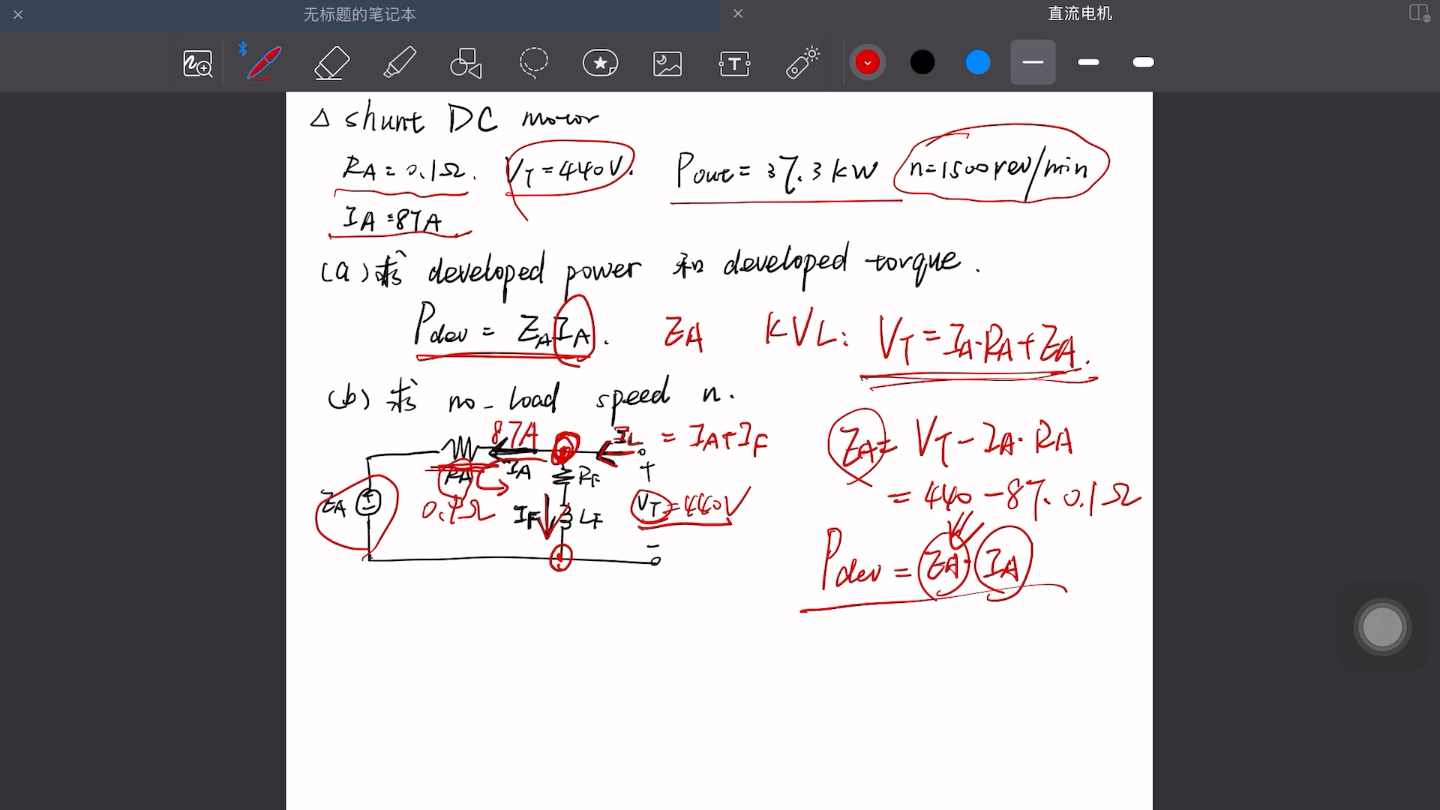 无标题的笔记本
直流电机
△ shunt DC motor
RA = 0.1Ω. VT = 440V. Pout = 37.3kW n=1500rev/min
IA = 87A
(a) 求 developed power 和 developed torque.
Pdev = EA IA. EA KVL: VT = IA·RA + EA.
(b) 求 no-load speed n.
87A IL = IA + IF
EA = VT - IA·RA
RA IA RF +
= 440 - 87·0.1Ω
EA 0.1Ω IF LF VT = 440V
-
Pdev = EA·IA